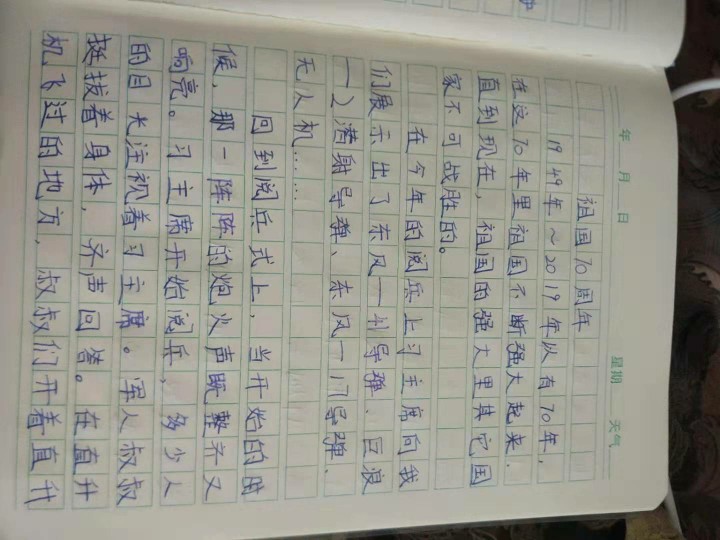 年 月 日 星期 天气
祖国70周年
1949年~2019年以有70年,
在这70年里祖国不断强大起来.
直到现在,祖国的强大里其它国
家不可战胜的。
在今年的阅兵上习主席向我
们展示出了东风一 导弹.巨浪
一)潜射导弹、东风一 导弹.
无人机……
回到阅兵式上,当开始的时
候,那一阵阵的炮火声既整齐又
响亮。习主席开始阅兵,多少人
的目光注视着习主席。军人叔叔
挺拔着身体,齐声回答。在直升
机飞过的地方,叔叔们开着直升